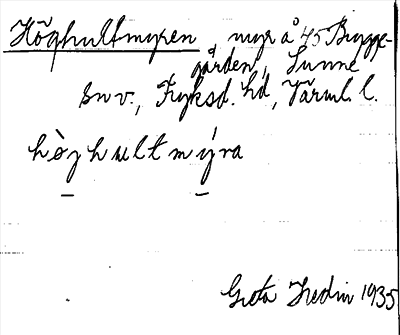 Höghultmyren myr å 45 Brygge-
gården, Sunne
sn v., Fryksd. hd, Värml. l.
hòghultmýra
Greta Hedin 1935